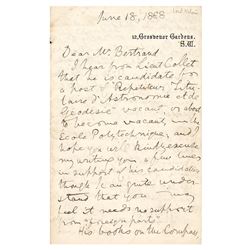 June 18, 1888
12, Grosvenor Gardens.
S.W.
Dear Mr Bertrand
I hear from Lieut Collet
that he is candidate for
a post of "Repetiteur Titu-
laire d'Astronomie et de
Geodesie" vacant, or about
to become vacant, in the
Ecole Polytechnique, and I
hope you will kindly excuse
my writing you a few lines
in support of his candidature
though I can quite under-
stand that you may
feel it needs no support
from "foreign parts".
His books on the Compass